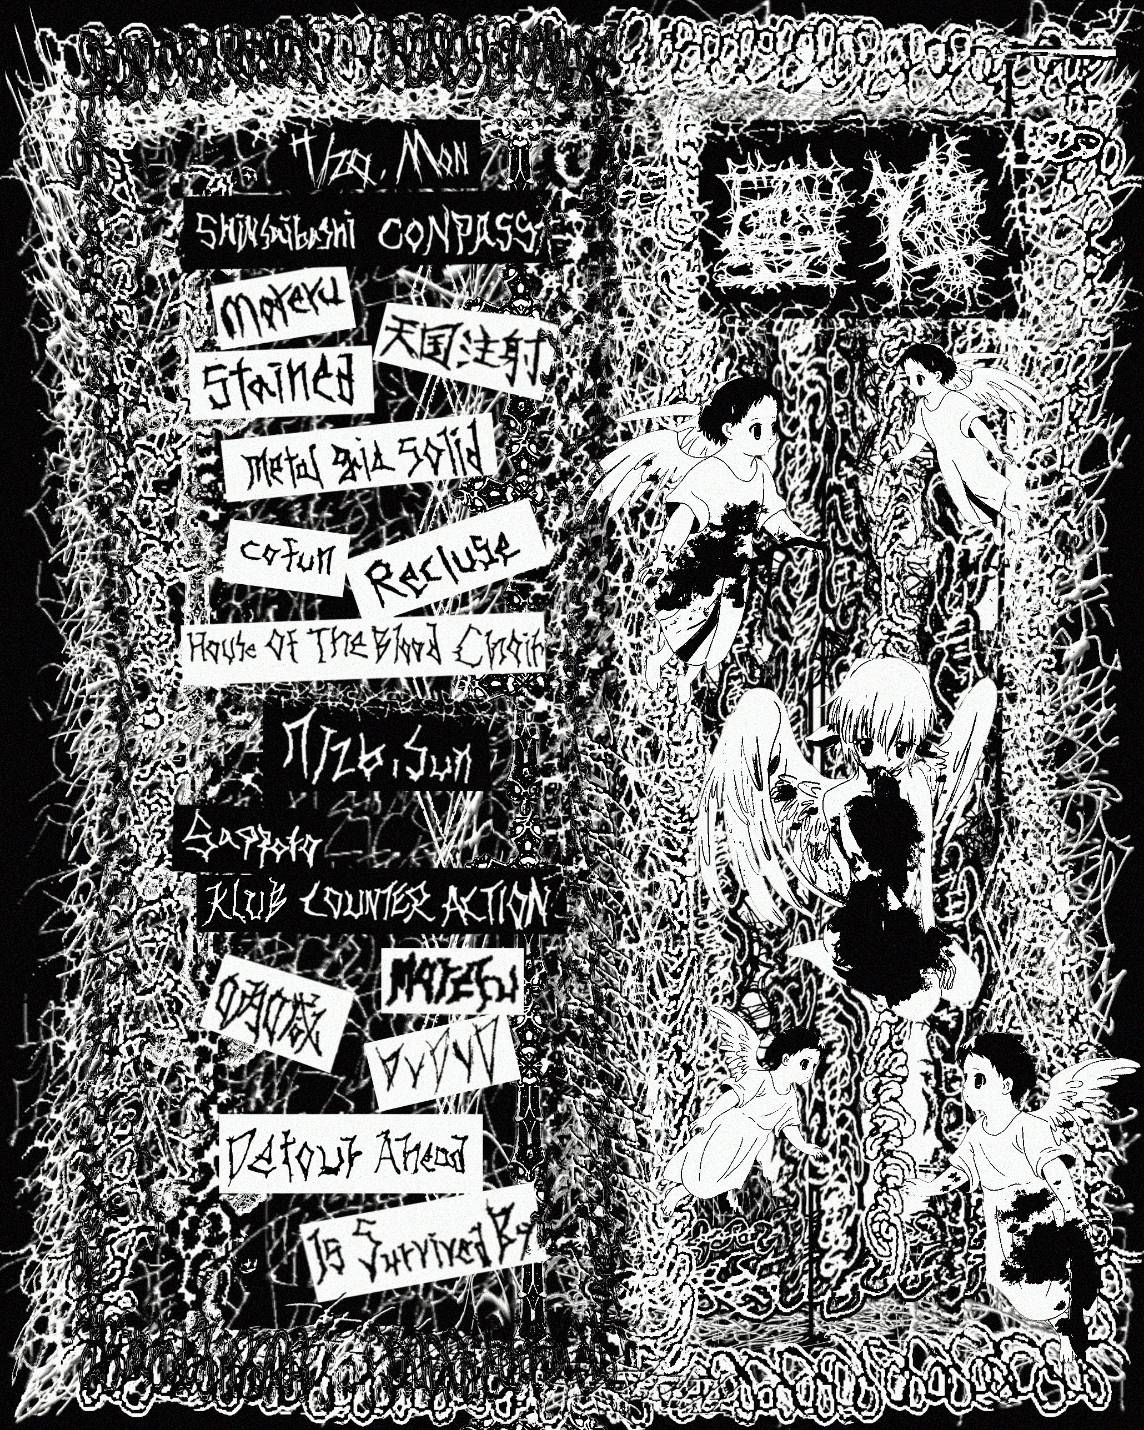 7/20, Mon
Shinsaibashi CONPASS
Moreru
天国注射
Stained
metal gria solid
cofun
Recluse
House Of The Blood Choir
7/26, Sun
Sapporo
KLUB COUNTER ACTION
DvDvD
Detour Ahead
Is Survived By